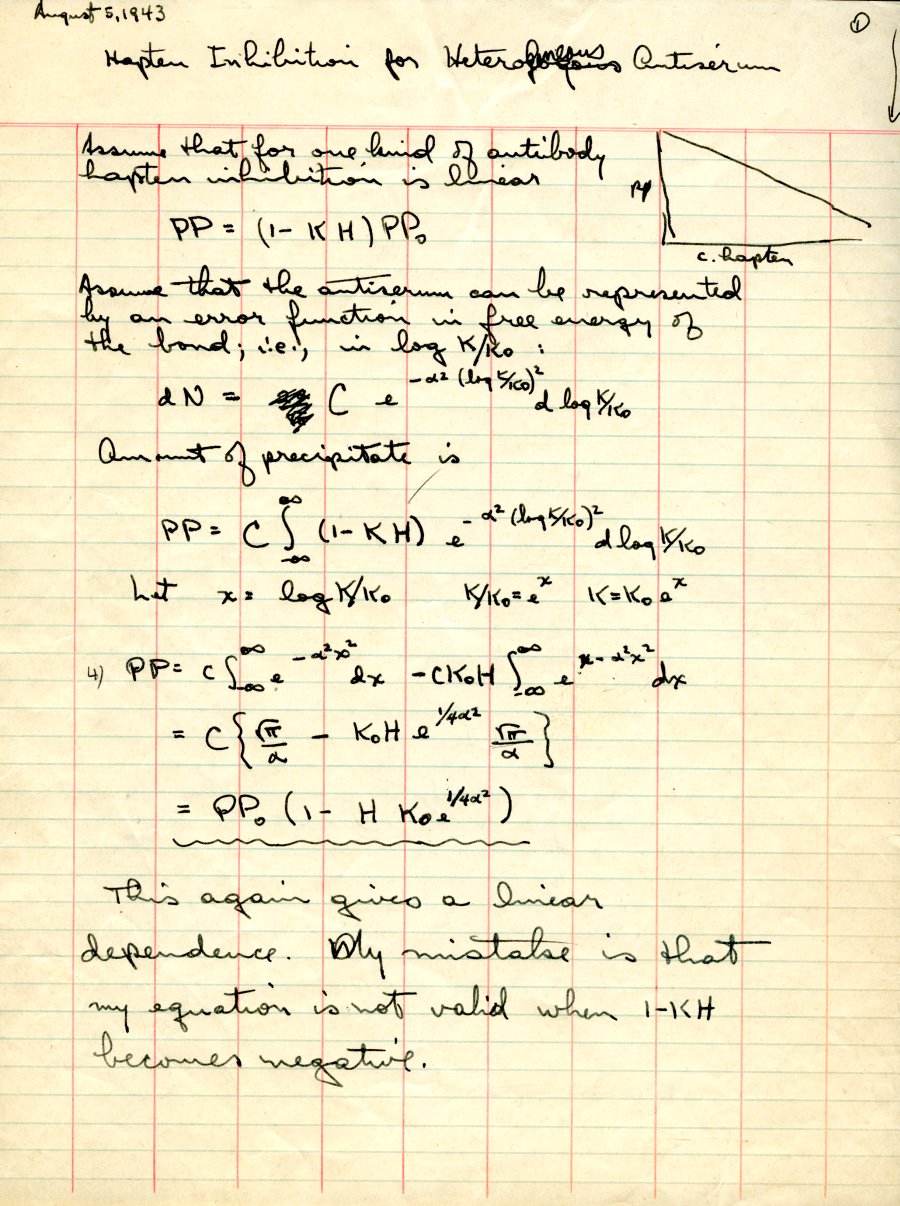 August 5, 1943
①
Hapten Inhibition for Heterogeneous Antiserum
Assume that for one kind of antibody
hapten inhibition is linear
PP
c. hapten
PP = (1 - K H) PP₀
Assume that the antiserum can be represented
by an error function in free energy of
the bond; i.e., in log K/K₀ :
dN = C e^{-α² (log K/K₀)²} d log K/K₀
Amount of precipitate is
PP = C ∫_{-∞}^{∞} (1 - KH) e^{-α² (log K/K₀)²} d log K/K₀
Let x = log K/K₀ K/K₀ = e^x K = K₀ e^x
4) PP = C ∫_{-∞}^{∞} e^{-α²x²} dx - C K₀ H ∫_{-∞}^{∞} e^{x - α²x²} dx
= C { √π/α - K₀ H e^{1/4α²} √π/α }
= PP₀ (1 - H K₀ e^{1/4α²})
This again gives a linear
dependence. My mistake is that
my equation is not valid when 1-KH
becomes negative.